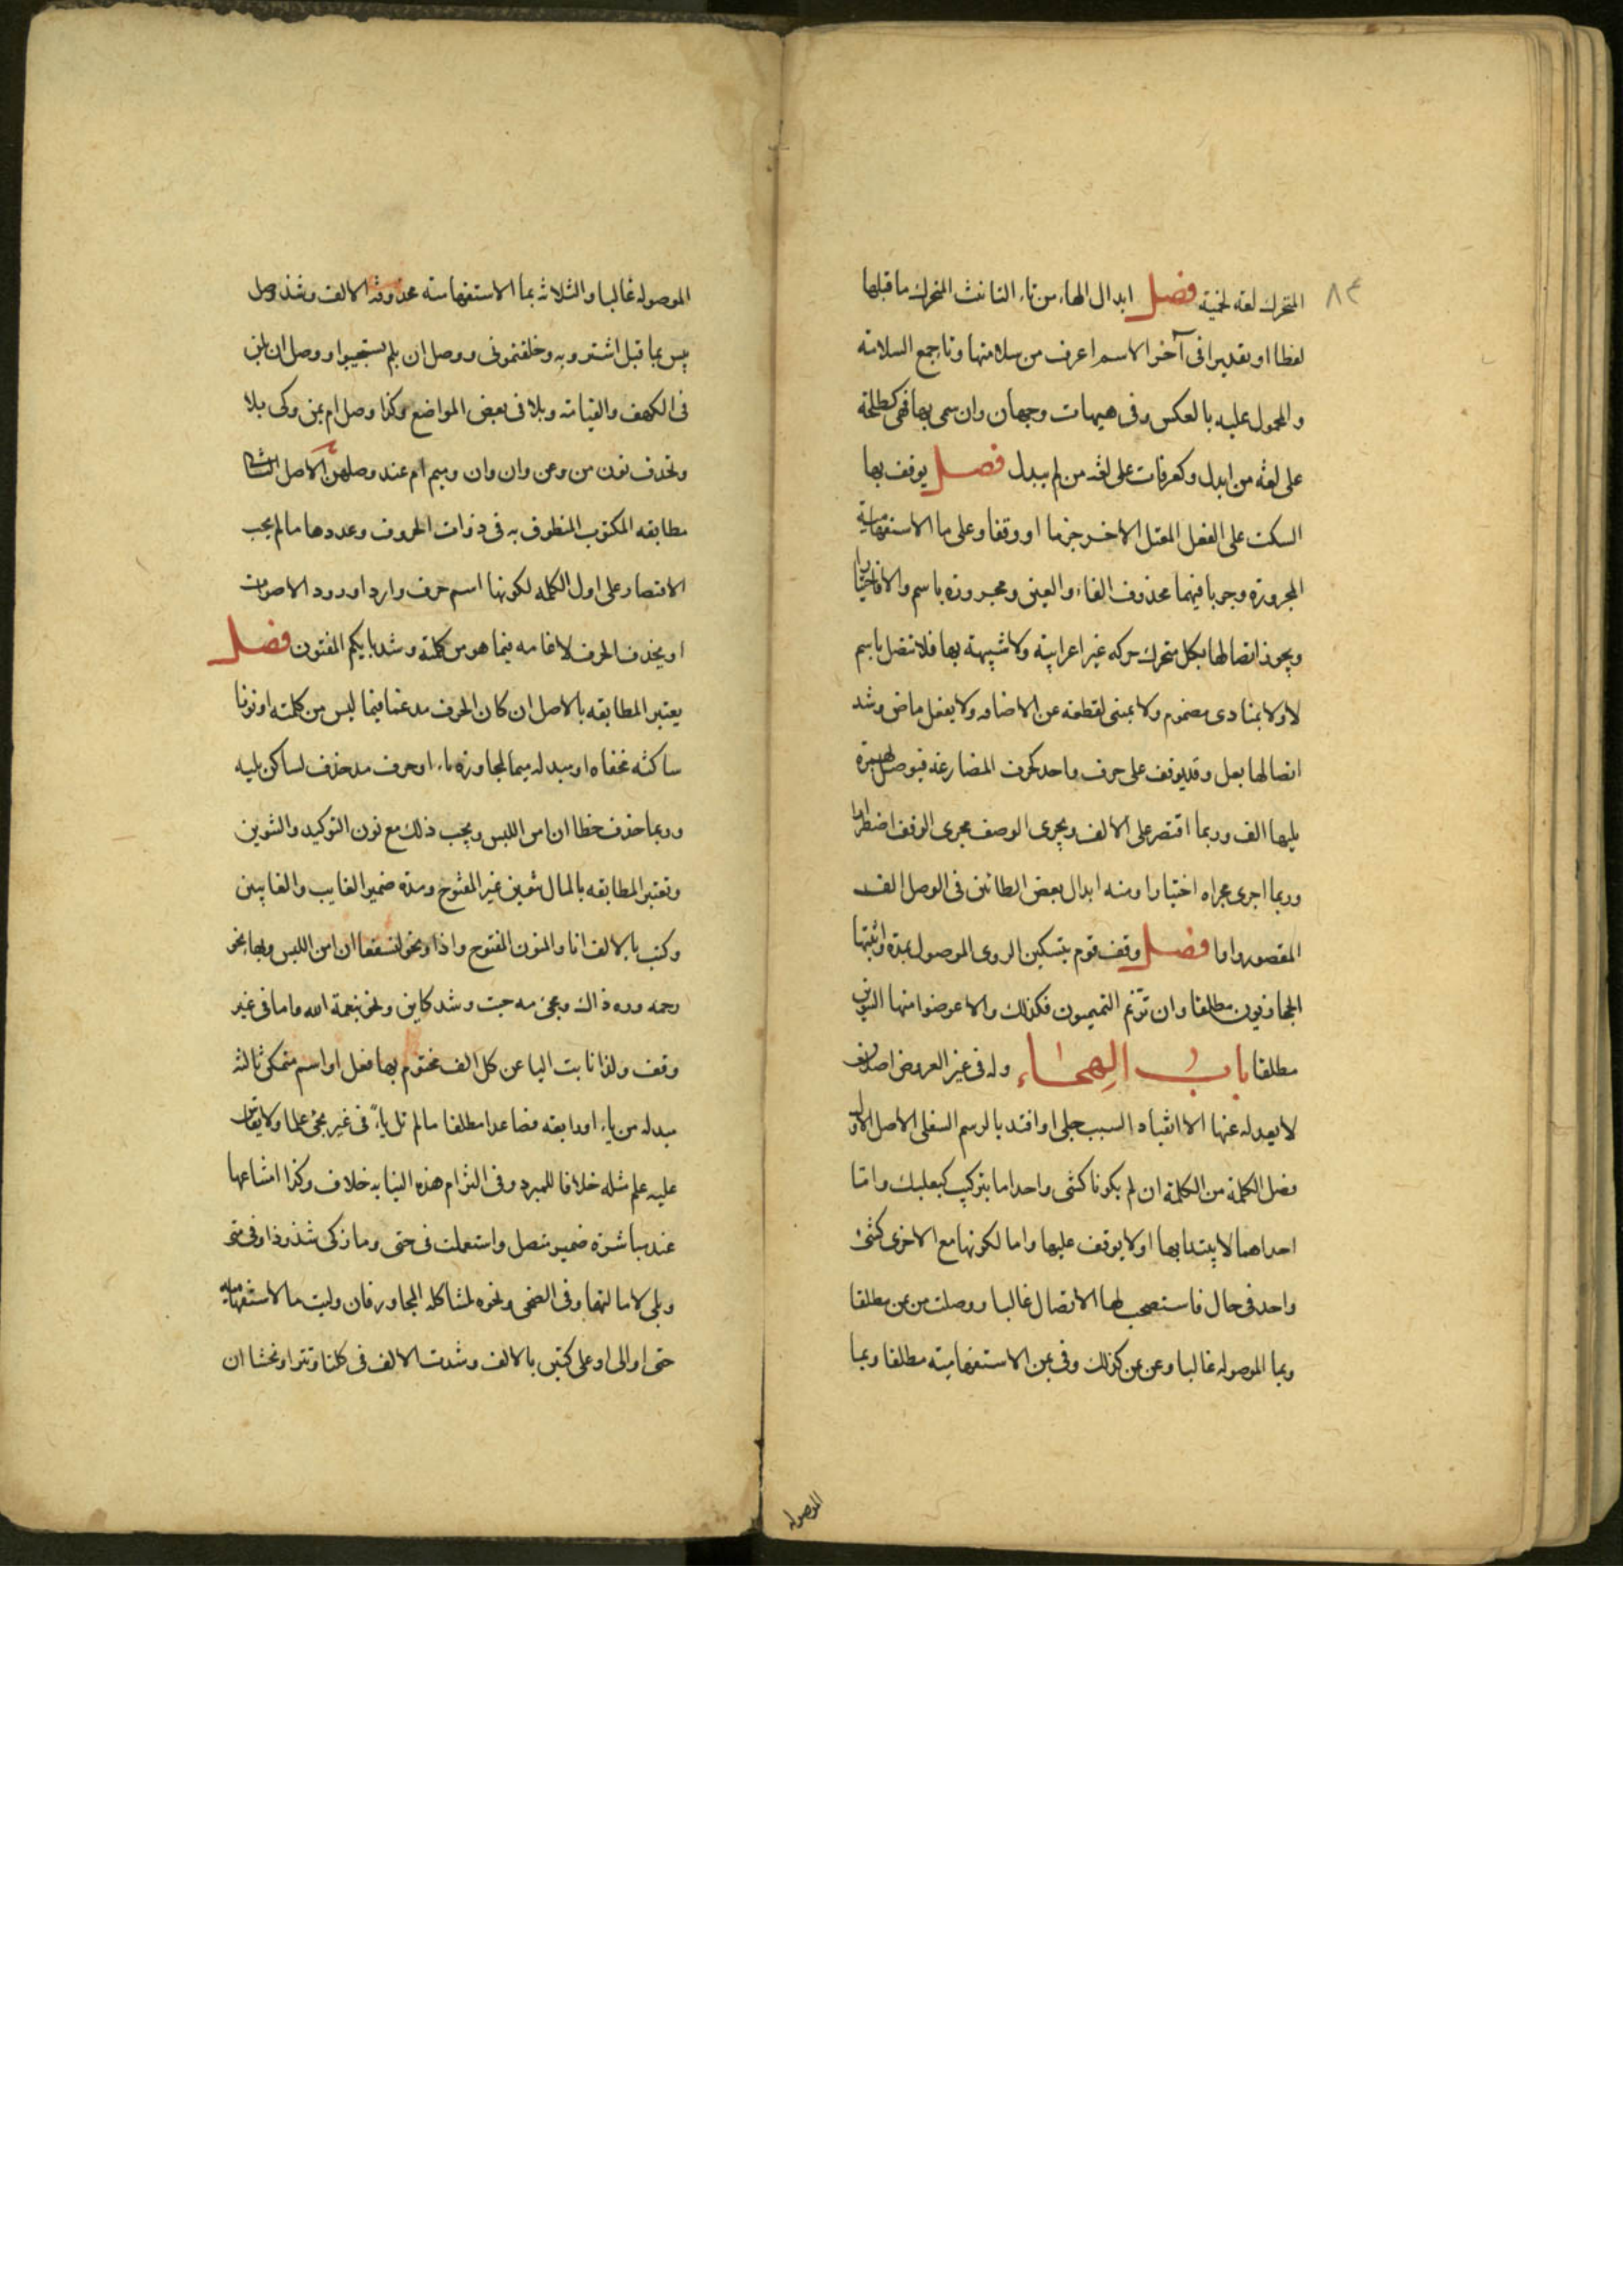 ٨٤
المتحرك لغة لخمية فصل ابدال الهاء من تاء التانيث المتحرك ما قبلها
لفظا او تقديرا فى آخر الاسم اعرف من سلامتها وتا جمع السلامة
والمحمول عليه بالعكس وفى هيهات وجهان وان سمى بها فهى كطلحة
على لغة من ابدل وكعرفات على لغة من لم يبدل فصل يوقف بها
السكت على الفعل المعتل الاخر جزما او وقفا وعلى ما الاستفهامية
المجرورة وجوبا فيهما محذوف الفاء والعين ومجرورة باسم والا فاختيارا
ويجوز اتصالها بكل متحرك حركة غير اعرابية ولا شبيهة بها فلا تتصل باسم
لا ولا بمنادى مضموم ولا بمبنى لقطعه عن الاضافه ولا بفعل ماض وشد
اتصالها بعل وقد يوقف على حرف واحد كحرف المضارعة فيوصل بهمزة
يليها الف وربما اقتصر على الالف ويجرى الوصف مجرى الوقف اضطرارا
وربما اجرى مجراه اختيارا ومنه ابدال بعض الطائين فى الوصل الف
المقصور واوا فصل وقف قوم بتسكين الروى الموصول بمدة واثبتها
الحجازيون مطلقا وان ترنم التميميون فكذلك والا عوضوا منها التنوين
مطلقا باب الهجاء وله فى غير العروض اصلان
لا يعدل عنها الا انقيادا لسبب جلى او اقتد بالرسم السفلى الاصل الاول
فصل الكلمة من الكلمة ان لم يكونا كشى واحد اما بتركيب كبعلبك واما
احداهما لا يبتدا بها او لا يوقف عليها واما لكونها مع الاخرى كشئ
واحد فى حال فاستصحب لها الاتصال غالبا ووصلت من بمن مطلقا
وبما الموصوله غالبا وعن بمن كذلك وفى بمن الاستفهامية مطلقا وبما
الموصوله
الموصوله غالبا والثلاثه بما الاستفهامية محذوفة الالف وشذ وصل
بيس بما قبل اشتروا به وخلفتمونى ووصل ان بلم يستجيبوا ووصل ان بلن
فى الكهف والقيامة وبلا فى بعض المواضع وكذا وصل ام بمن وكى بلا
وتحذف نون من وعن وان وان وميم ام عند وصلهن الاصل الثانى
مطابقه المكتوب المنطوق به فى ذوات الحروف وعددها ما لم يجب
الاقتصار على اول الكلمه لكونها اسم حرف وارد او ورود الاصوات
او يحذف الحرف لادغامه فيما هو من كلمة وشد بايكم المفتون فصل
يعتبر المطابقه بالاصل ان كان الحرف مدغما فيما ليس من كلمته او نونا
ساكنه مخفاه او مبدله ميما لمجاورة باء او حرف مد حذف لساكن يليه
وربما حذف خطا ان امن اللبس ويجب ذلك مع نون التوكيد والتنوين
وتعتبر المطابقه بالمال غير المفتوح ومده ضمير الغايب والغايبين
وكتب بالالف انا والمنون المفتوح واذا ونحو لنسفعا ان امن اللبس وبها نحو
رحمه وره ذاك ومجئ مه جيت وشد كاين ونحو بنعمة الله واما فى غير
وقف ولذا نابت اليا عن كل الف مختوم بها فعل او اسم متمكن ثالثه
مبدله من ياء او رابعه فصاعدا مطلقا ما لم تل ياء فى غير يحيى علما ولا يقاس
عليه علم مثله خلافا للمبرد وفى التزام هذه النيابه خلاف وكذا امتناعها
عند مباشرة ضمير متصل واستعملت فى حتى وما زكى شذوذا وفى متى
وبلى لامالتها وفى الضحى ونحوه لمشاكله المجاور فان وليت ما الاستفهاميه
حتى او الى او على كتبن بالالف وشدت الالف فى كلتا وتترا ونخشا ان